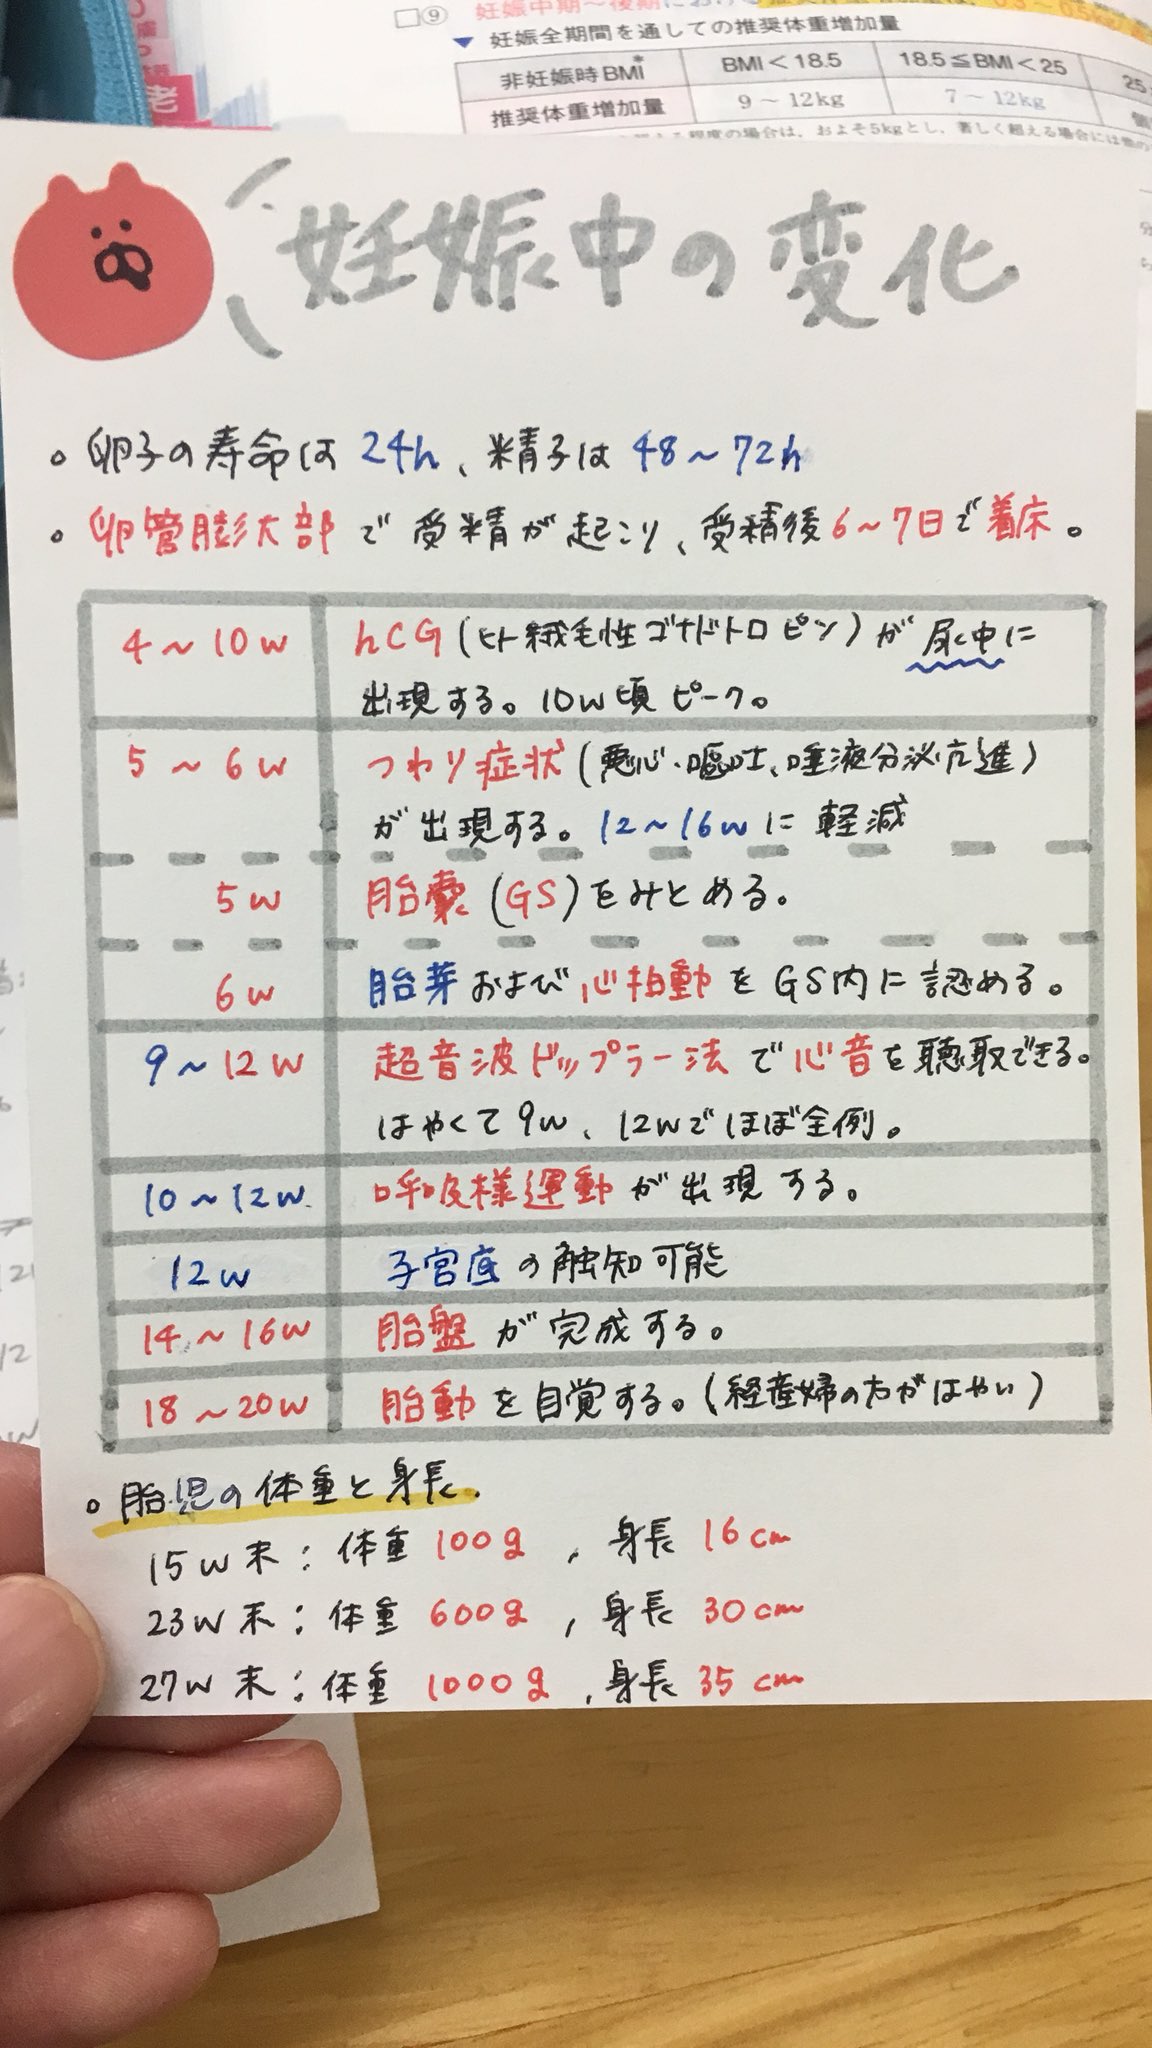 ⑨ 妊娠中期～後期における
▼ 妊娠全期間を通しての推奨体重増加量
非妊娠時BMI* BMI＜18.5 18.5≦BMI＜25 25
推奨体重増加量 9～12kg 7～12kg
程度の場合は、およそ5kgとし、著しく超える場合には他の
老
妊娠中の変化
○ 卵子の寿命は 24h、精子は 48～72h
○ 卵管膨大部で受精が起こり、受精後6～7日で着床。
4～10w hCG(ヒト絨毛性ゴナドトロピン)が尿中に
出現する。10w頃ピーク。
5～6w つわり症状(悪心・嘔吐、唾液分泌亢進)
が出現する。12～16wに軽減
5w 胎嚢(GS)をみとめる。
6w 胎芽および心拍動をGS内に認める。
9～12w 超音波ドップラー法で心音を聴取できる。
はやくて9w、12wでほぼ全例。
10～12w 呼吸様運動が出現する。
12w 子宮底の触知可能
14～16w 胎盤が完成する。
18～20w 胎動を自覚する。(経産婦の方がはやい)
○ 胎児の体重と身長.
15w末：体重 100g，身長 16cm
23w末：体重 600g，身長 30cm
27w末：体重 1000g，身長 35cm